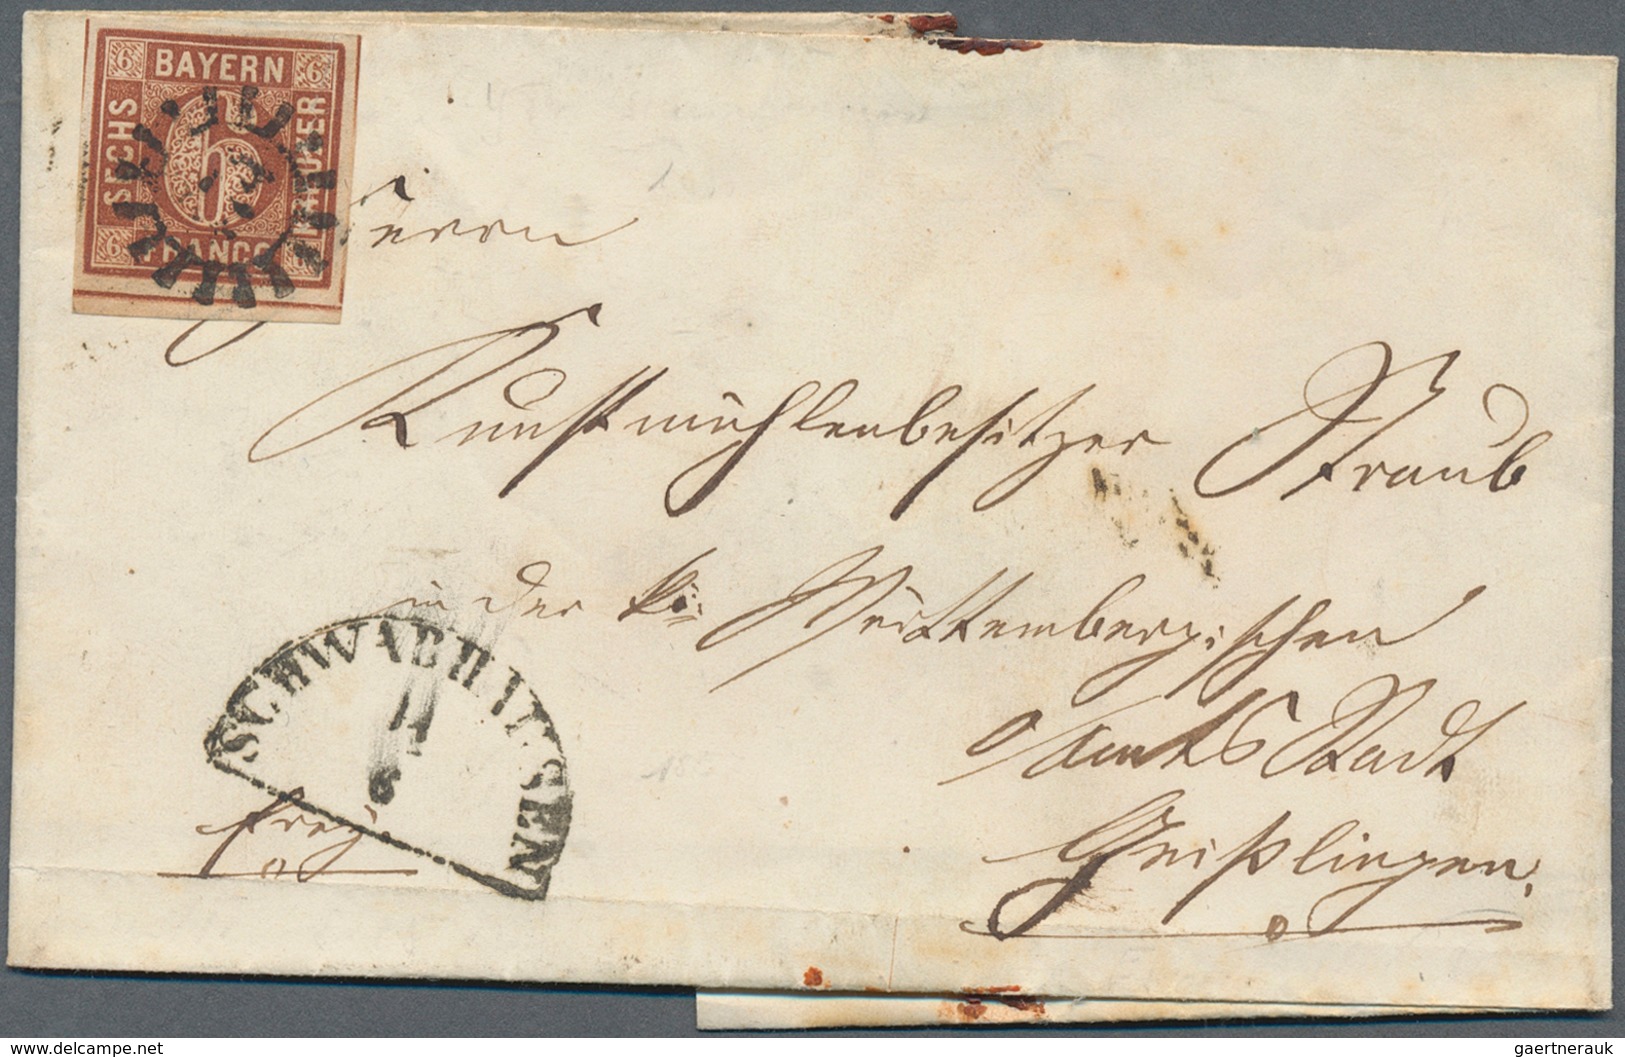 6 BAYERN 6
SECHS
6
KREUZER
6 FRANCO
Herrn
Kunstmühlenbesitzer Straub
in der k: Württembergischen
OberamtsStadt
Geißlingen.
SCHWABHAUSEN
11
6
frey.
gaertnerauk